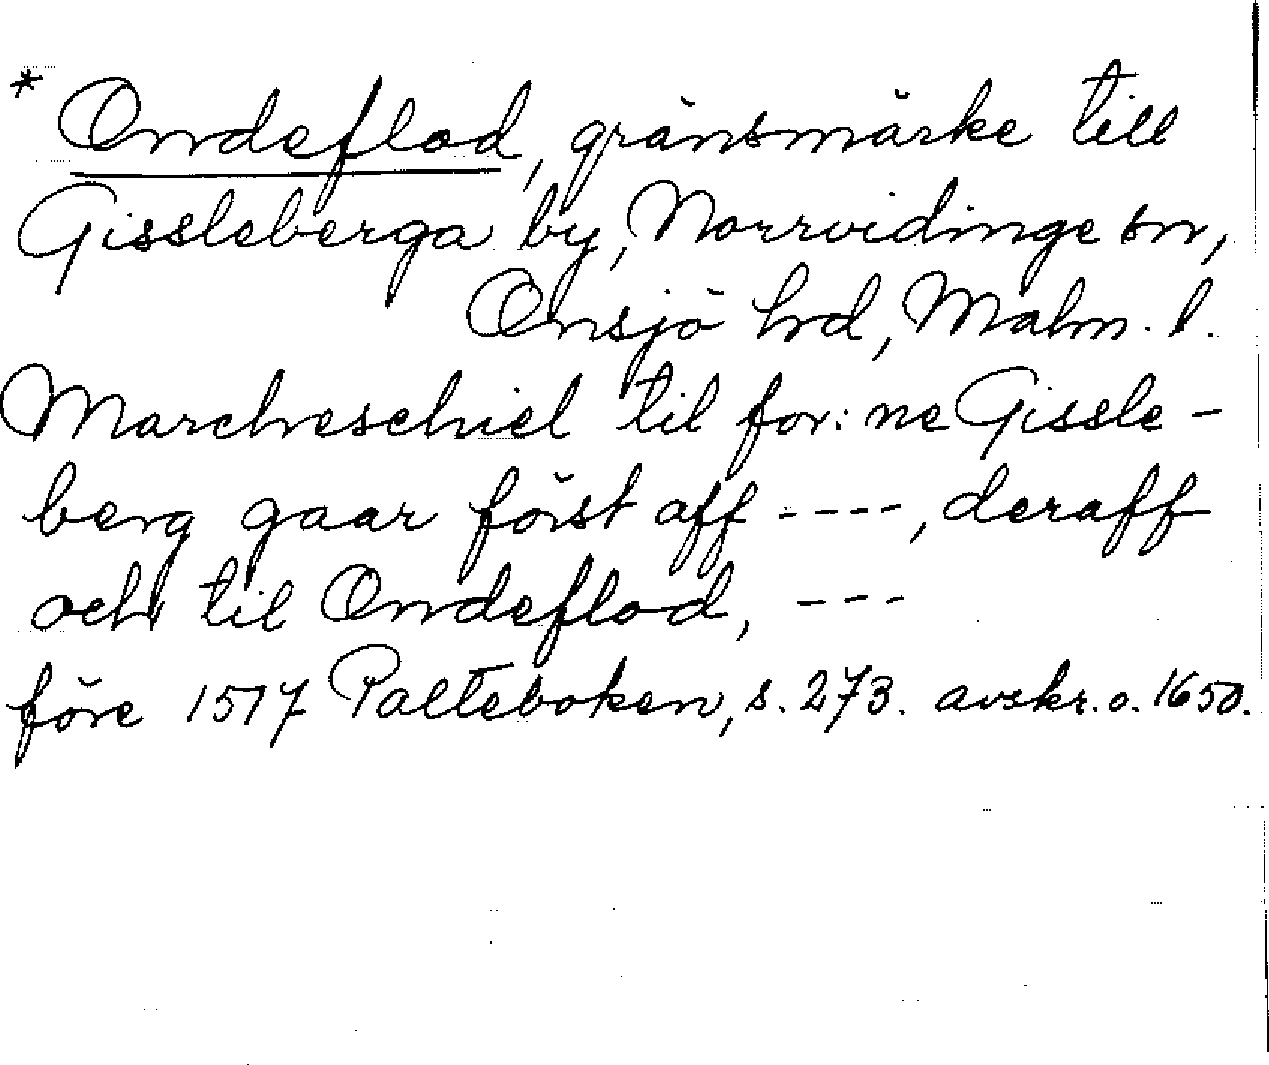 * Ondeflod, gränsmärke till
Gissleberga by, Norrvidinge sn,
Onsjö hd, Malm. l.
Marcheschiel til for: ne Gissle-
berg gaar först aff ----, deraff
och til Ondeflod, ---
före 1517 Palteboken, s. 273. avskr. o. 1650.